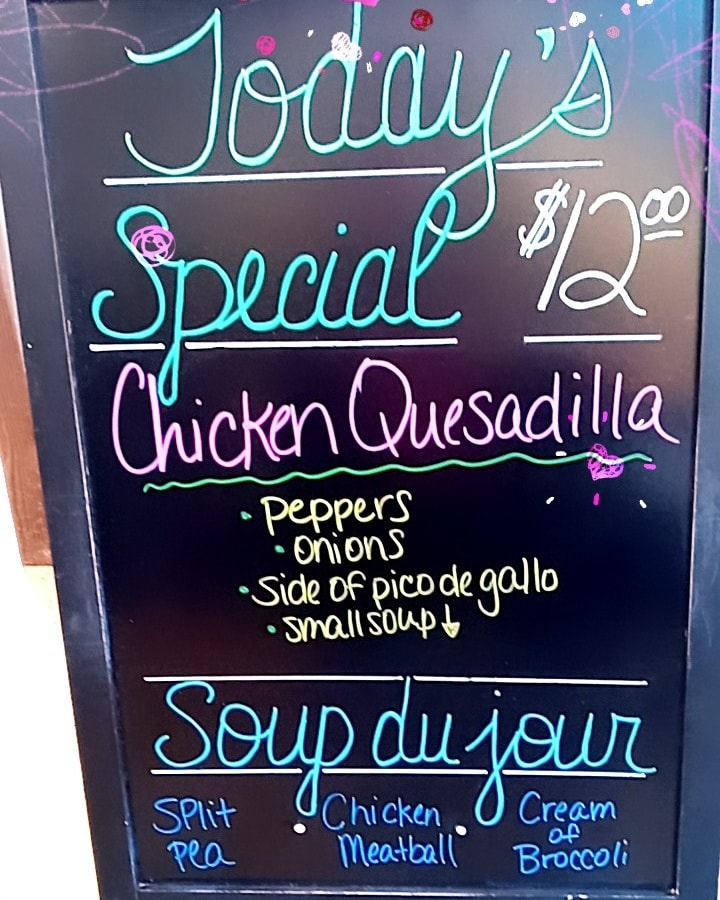 Today's
Special $12.00
Chicken Quesadilla
• peppers
• onions
• side of pico de gallo
• small soup ↓
Soup du jour
Split pea • Chicken Meatball • Cream of Broccoli